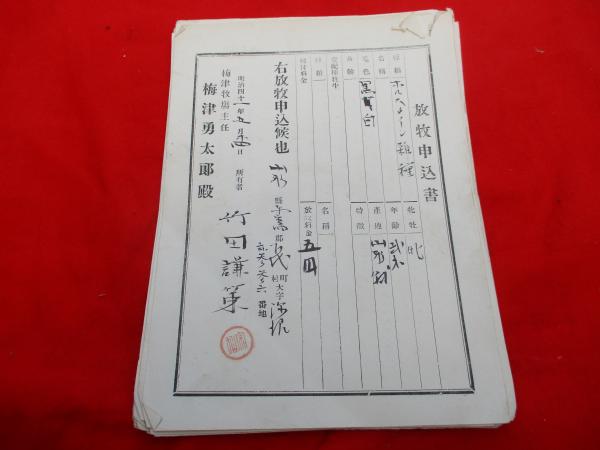 放牧申込書
種類 ホルスタイン雑種 牝牡 牝
名稱 年齢 弐才
毛色 黒白 産地 山形縣
番齢 特徴
交配種牡牛 名稱
種類
種付料金 放牧料金 五円
右放牧申込候也
山形縣 郡 町村大字深堀
番地
明治四十一年五月 日 所有者 竹田謙策
梅津牧場主任
梅津勇太郎殿